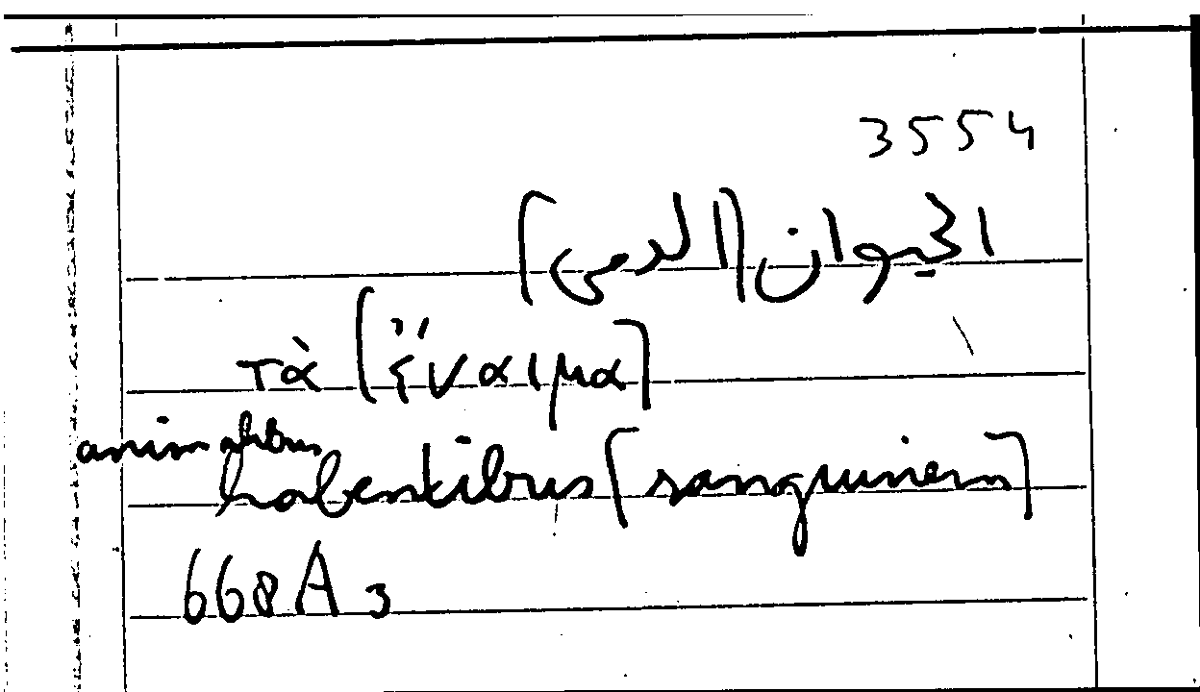 3554
الحيوان [الدمى]
τὰ [ἔναιμα]
animalibus
habentibus [sanguinem]
668A3